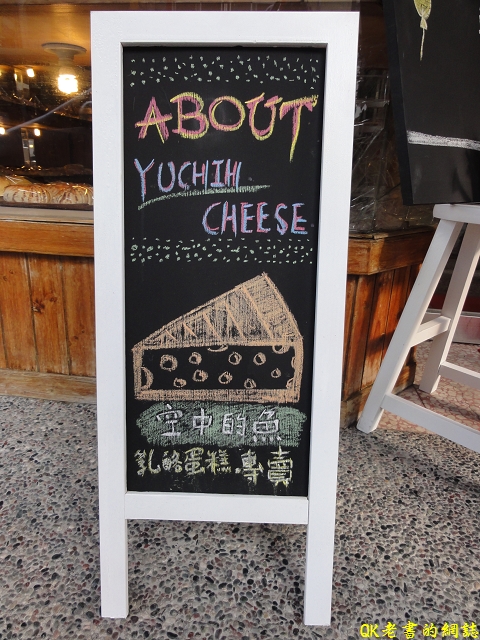 ABOUT
YUCHIH
CHEESE
空中的魚
乳酪蛋糕.專賣
QK老書的網誌